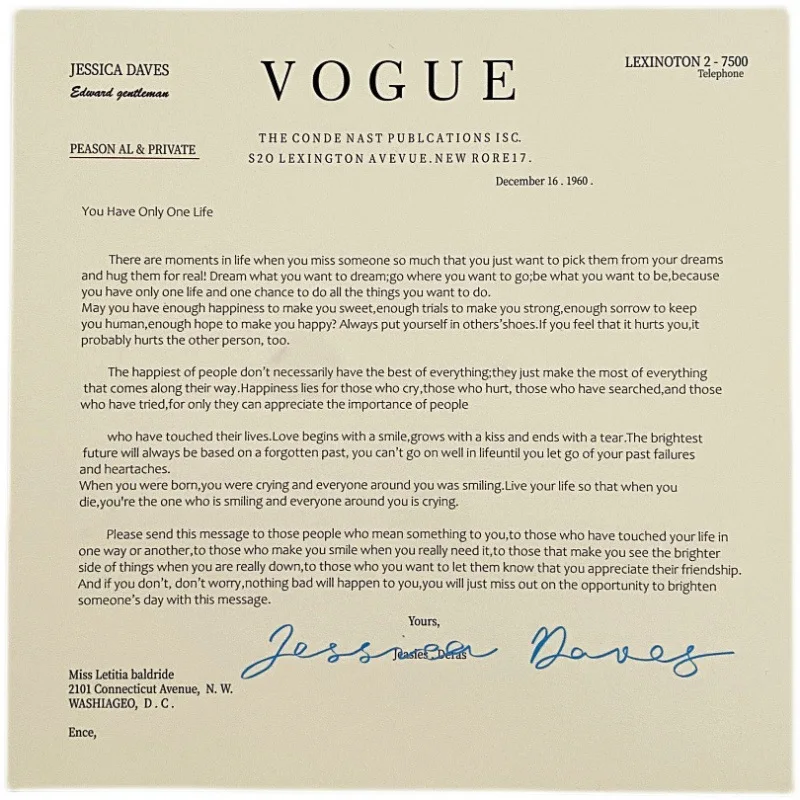 JESSICA DAVES
Edward gentleman
VOGUE
LEXINOTON 2 - 7500
Telephone
PEASON AL & PRIVATE
THE CONDE NAST PUBLCATIONS ISC.
S20 LEXINGTON AVEVUE.NEW RORE17.
December 16 . 1960 .
You Have Only One Life
There are moments in life when you miss someone so much that you just want to pick them from your dreams
and hug them for real! Dream what you want to dream;go where you want to go;be what you want to be,because
you have only one life and one chance to do all the things you want to do.
May you have enough happiness to make you sweet,enough trials to make you strong,enough sorrow to keep
you human,enough hope to make you happy? Always put yourself in others'shoes.If you feel that it hurts you,it
probably hurts the other person, too.
The happiest of people don't necessarily have the best of everything;they just make the most of everything
that comes along their way.Happiness lies for those who cry,those who hurt, those who have searched,and those
who have tried,for only they can appreciate the importance of people
who have touched their lives.Love begins with a smile,grows with a kiss and ends with a tear.The brightest
future will always be based on a forgotten past, you can't go on well in lifeuntil you let go of your past failures
and heartaches.
When you were born,you were crying and everyone around you was smiling.Live your life so that when you
die,you're the one who is smiling and everyone around you is crying.
Please send this message to those people who mean something to you,to those who have touched your life in
one way or another,to those who make you smile when you really need it,to those that make you see the brighter
side of things when you are really down,to those who you want to let them know that you appreciate their friendship.
And if you don't, don't worry,nothing bad will happen to you,you will just miss out on the opportunity to brighten
someone's day with this message.
Yours,
Jessica Daves
Miss Letitia baldride
2101 Connecticut Avenue, N. W.
WASHIAGEO, D . C .
Ence,